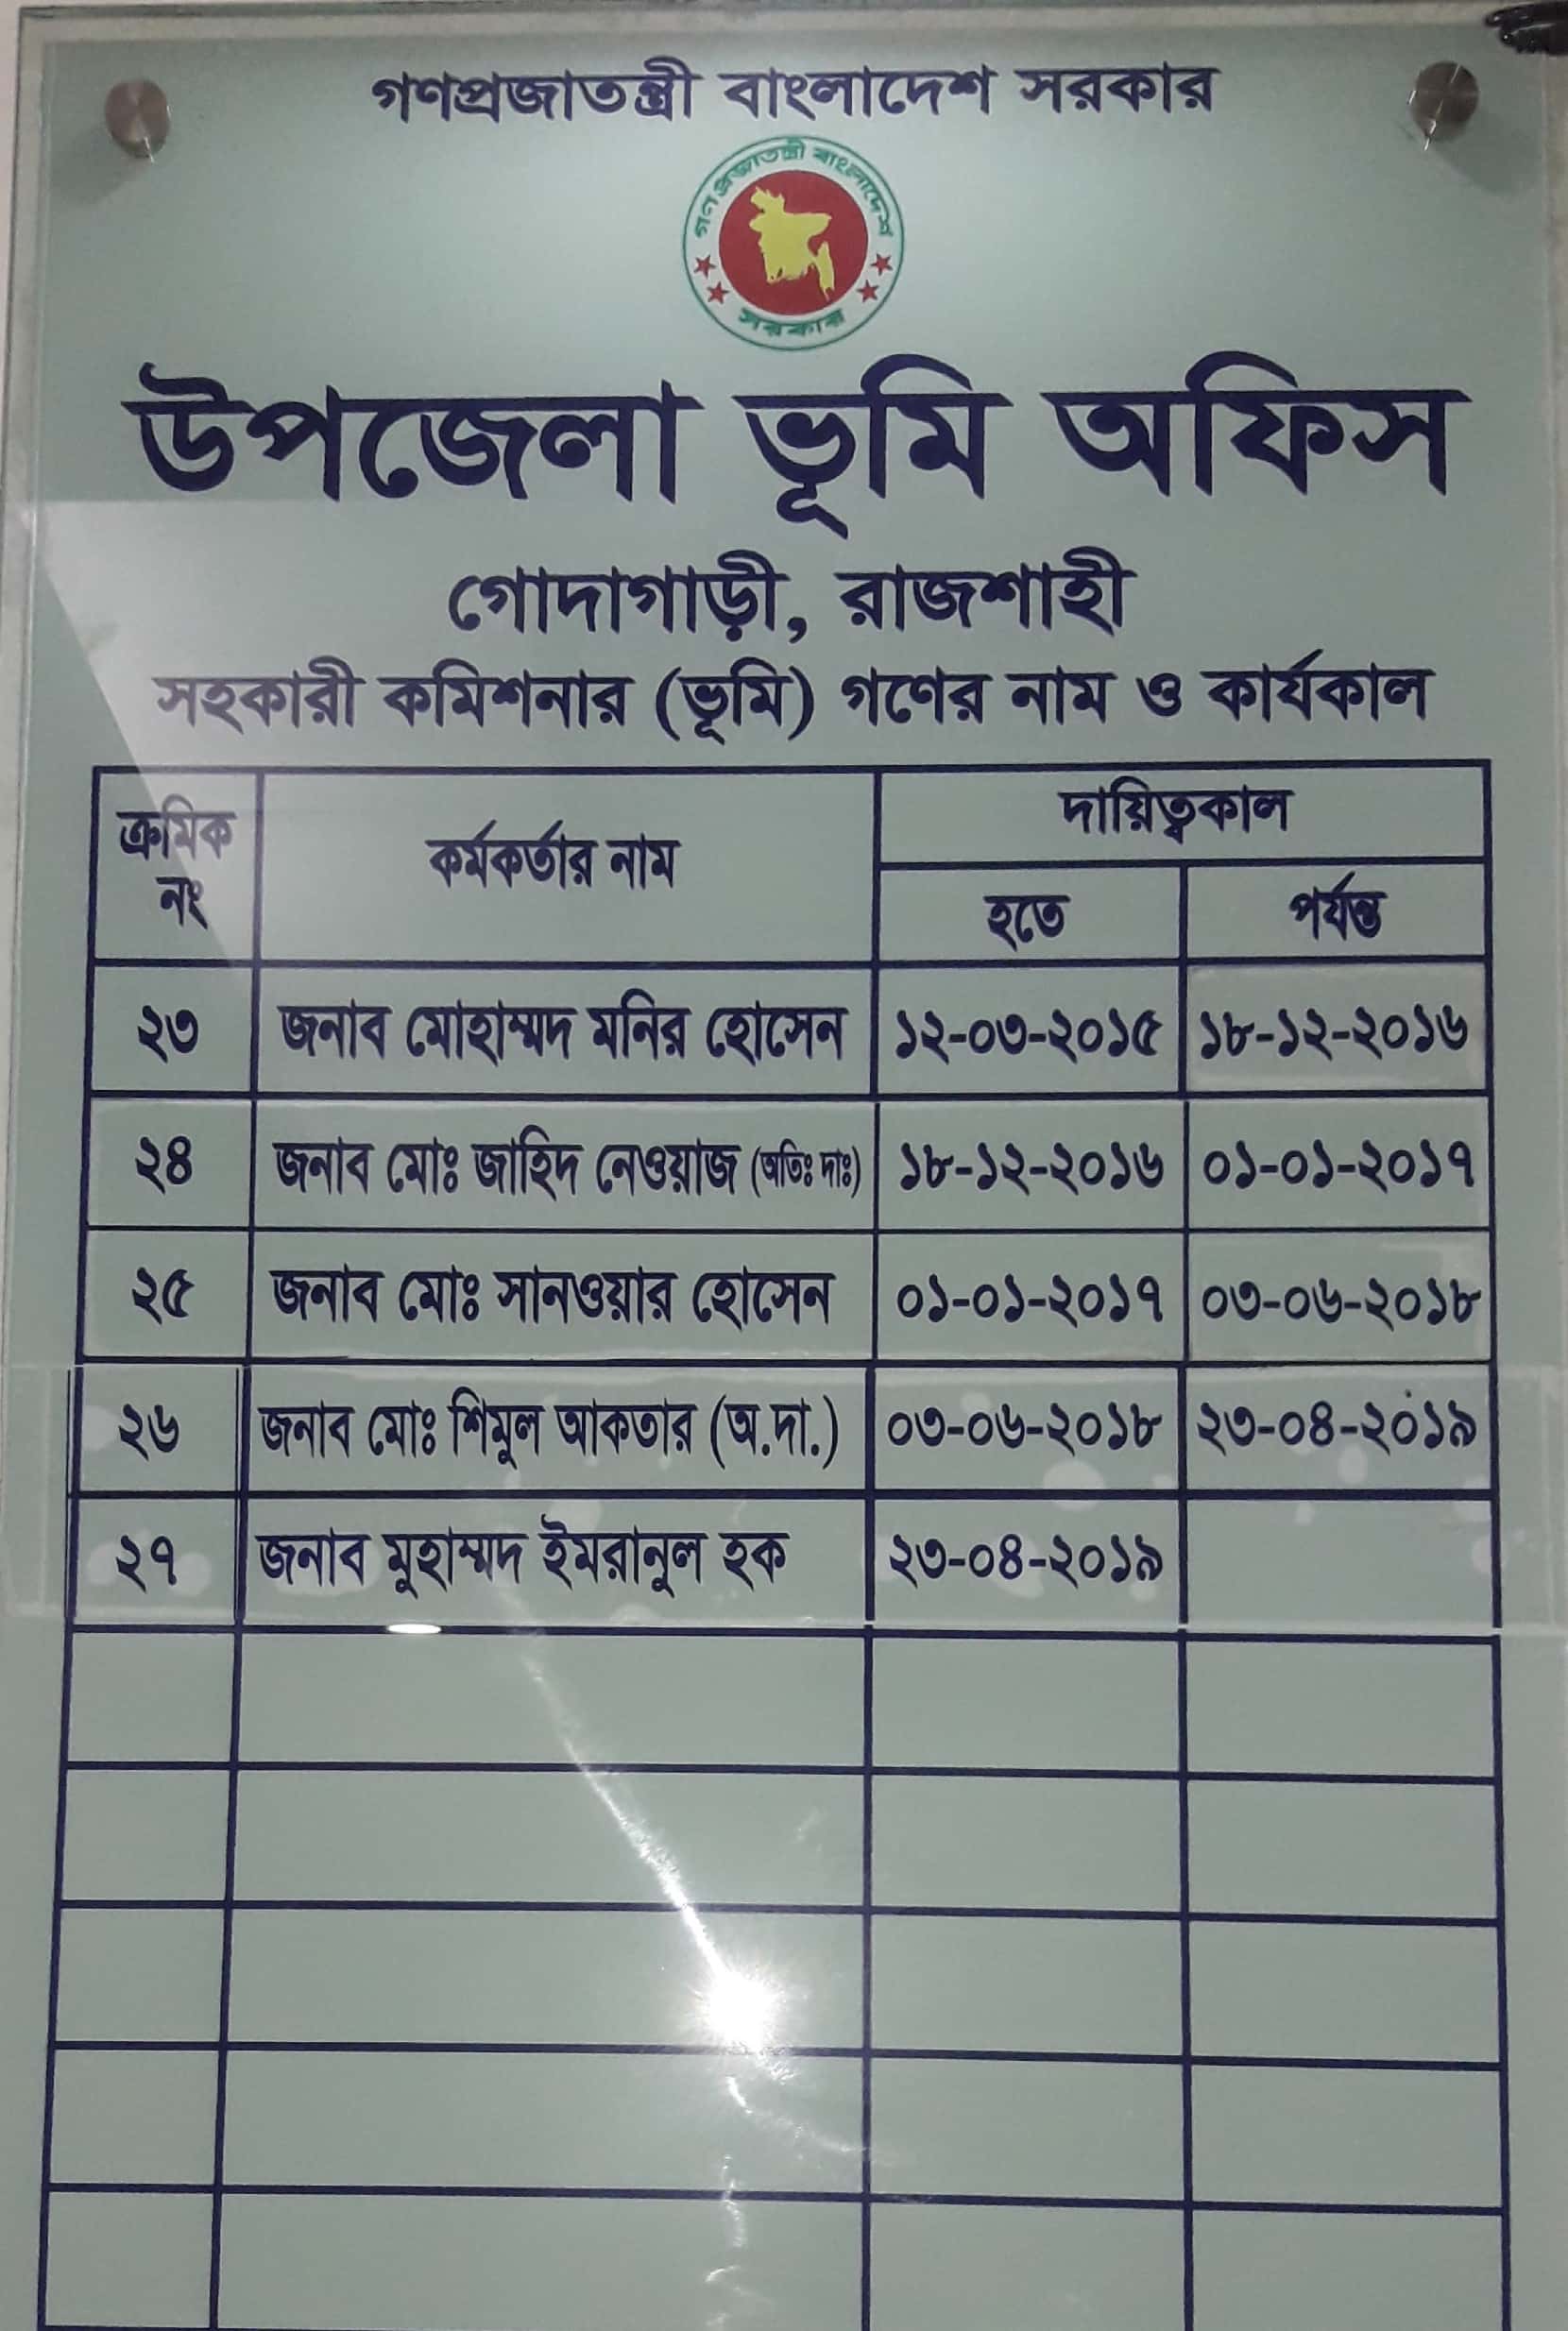 গণপ্রজাতন্ত্রী বাংলাদেশ সরকার
গণ প্রজাতন্ত্রী বাংলাদেশ
সরকার
উপজেলা ভূমি অফিস
গোদাগাড়ী, রাজশাহী
সহকারী কমিশনার (ভূমি) গণের নাম ও কার্যকাল
ক্রমিক নং কর্মকর্তার নাম দায়িত্বকাল
হতে পর্যন্ত
২৩ জনাব মোহাম্মদ মনির হোসেন ১২-০৩-২০১৫ ১৮-১২-২০১৬
২৪ জনাব মোঃ জাহিদ নেওয়াজ (অতিঃ দাঃ) ১৮-১২-২০১৬ ০১-০১-২০১৭
২৫ জনাব মোঃ সানওয়ার হোসেন ০১-০১-২০১৭ ০৩-০৬-২০১৮
২৬ জনাব মোঃ শিমুল আকতার (অ.দা.) ০৩-০৬-২০১৮ ২৩-০৪-২০১৯
২৭ জনাব মুহাম্মদ ইমরানুল হক ২৩-০৪-২০১৯